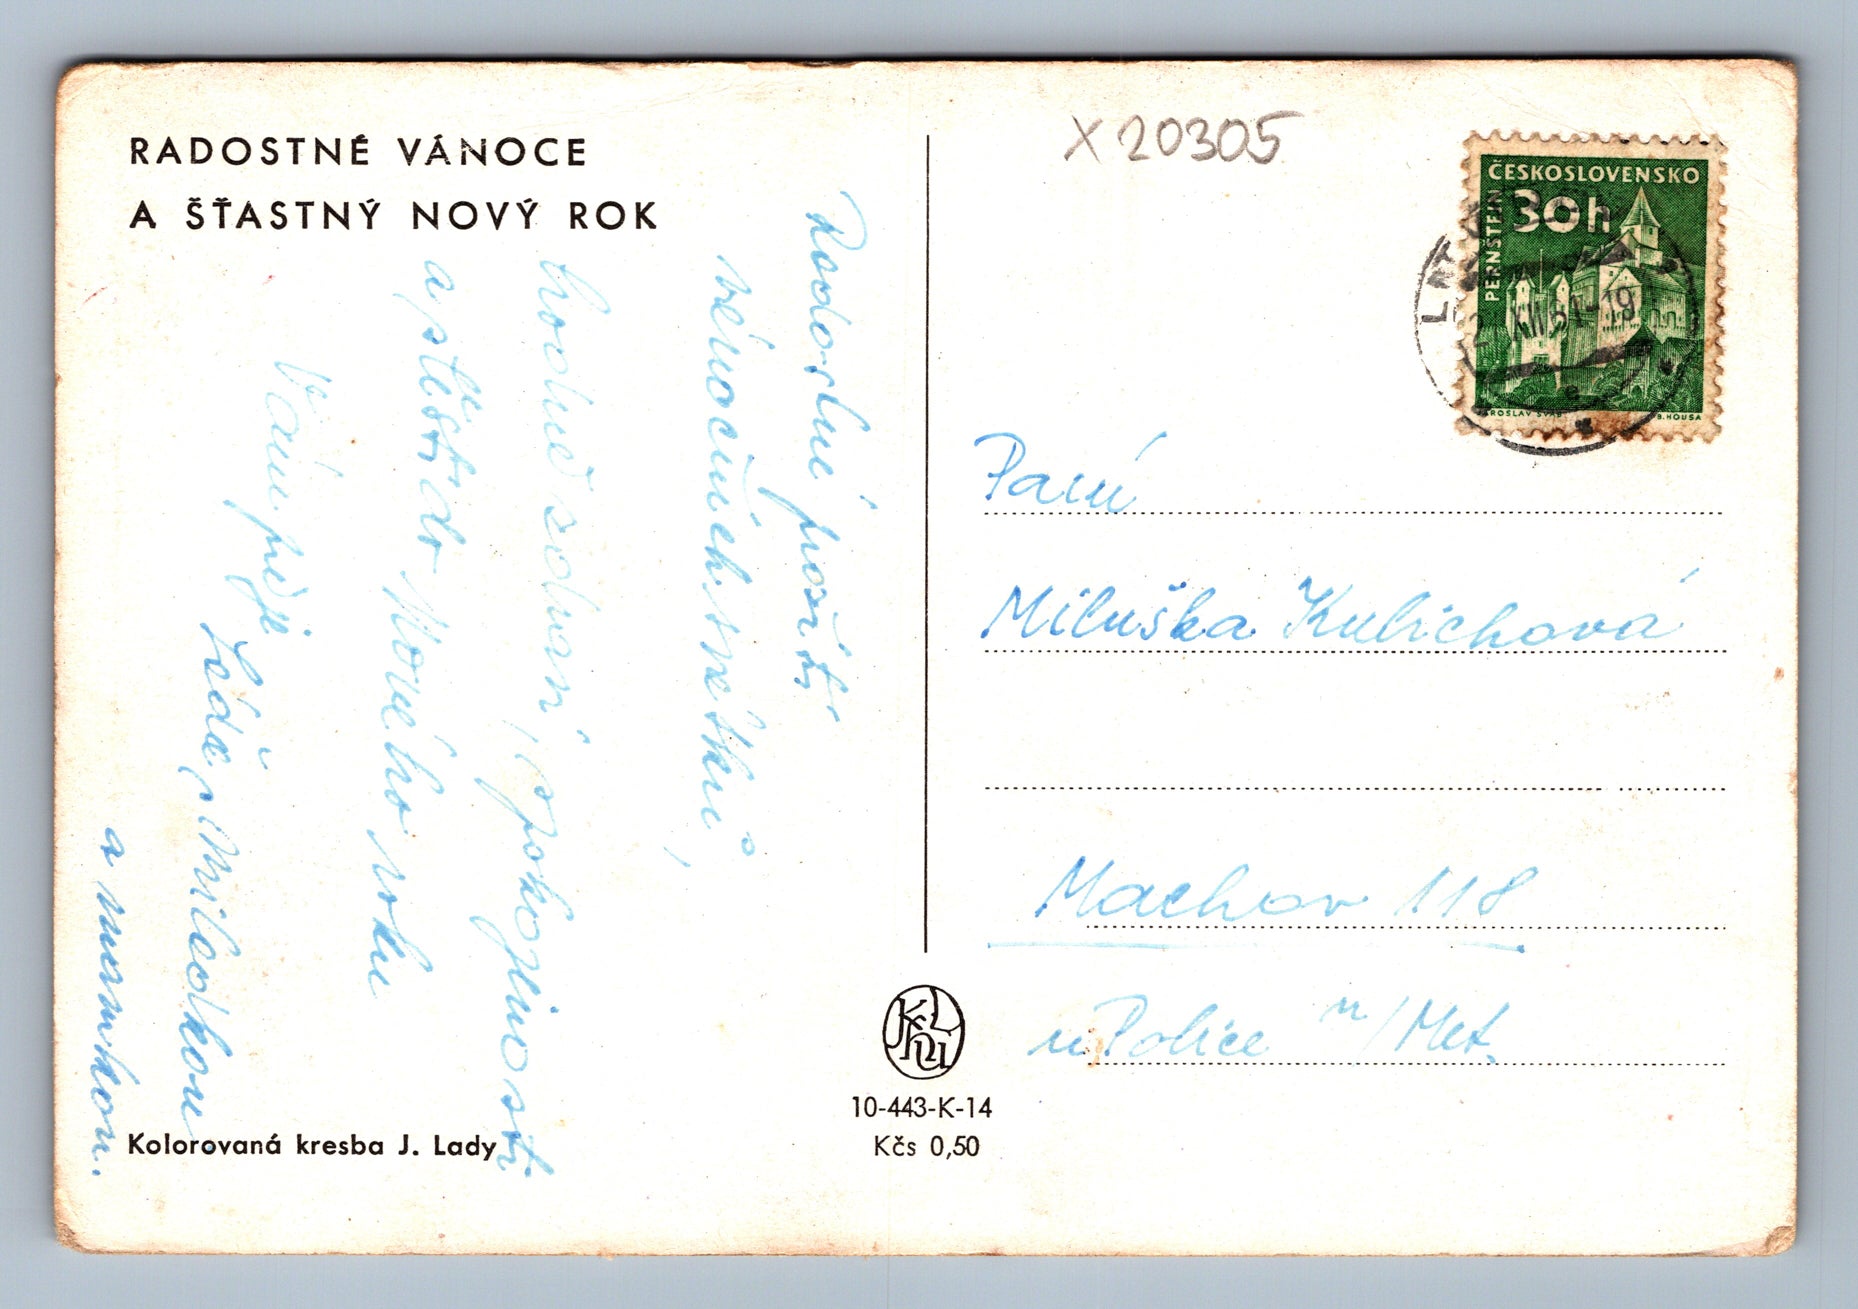 RADOSTNÉ VÁNOCE
A ŠŤASTNÝ NOVÝ ROK
Radostné prožití
vánočních svátků,
hodně zdraví, spokojenosti
a štěstí do Nového roku
Vám přeje
Láďa s Miladkou
a mamkou.
Kolorovaná kresba J. Lady
10-443-K-14
Kčs 0,50
X 20305
ČESKOSLOVENSKO
30h
PERNŠTEJN
JAROSLAV
B. HOUSA
XII.61-19
Paní
Miluška Kulichová
Machov 118
u Police n/Met.